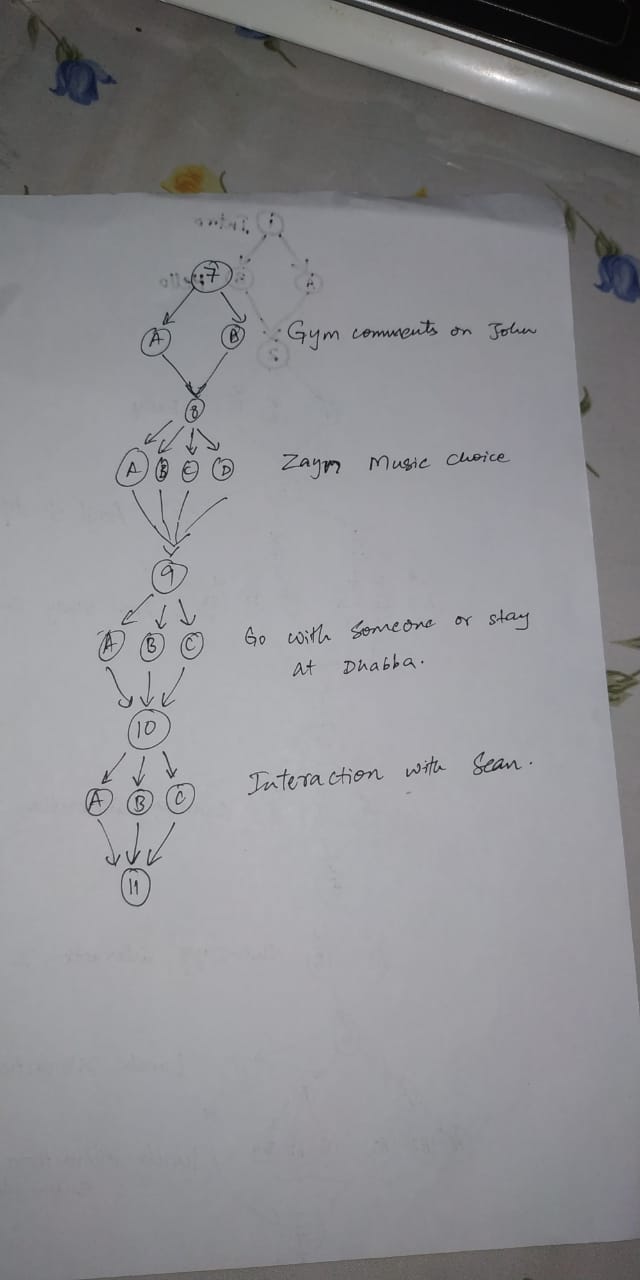 7
A B Gym comments on John
8
A B C D Zayn Music Choice
9
A B C Go with someone or stay
at Dhabba.
10
A B C Interaction with Sean.
11